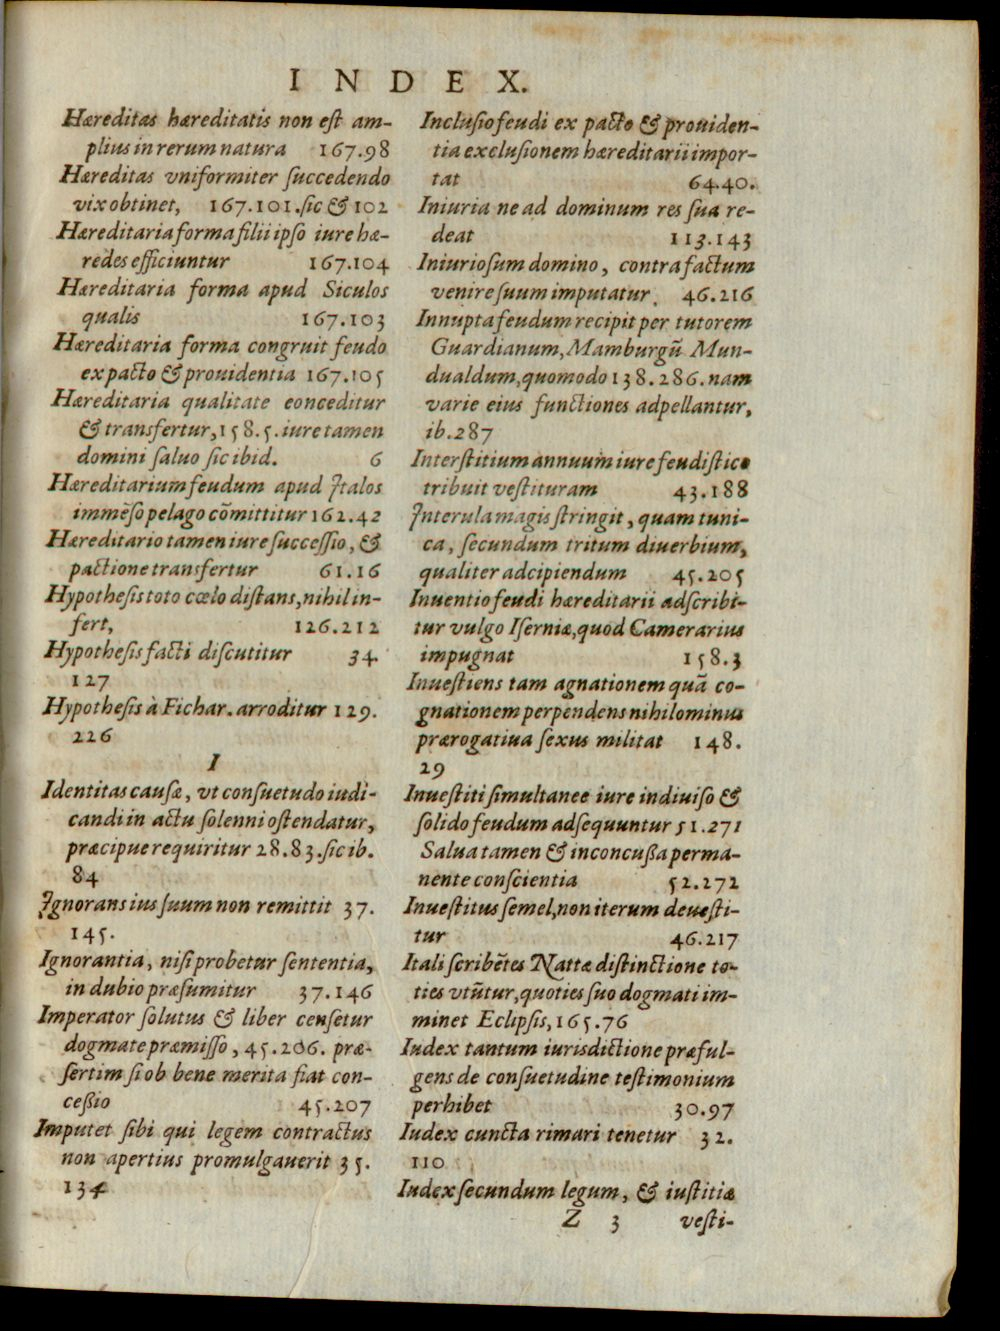 INDEX.
Hæreditas hæreditatis non est am-
plius in rerum natura 167.98
Hæreditas vniformiter succedendo
vix obtinet, 167.101. sic & 102
Hæreditaria forma filii ipso iure hæ-
redes efficiuntur 167.104
Hæreditaria forma apud Siculos
qualis 167.103
Hæreditaria forma congruit feudo
ex pacto & prouidentia 167.105
Hæreditaria qualitate eonceditur
& transfertur, 158.5. iure tamen
domini saluo sic ibid. 6
Hæreditarium feudum apud Italos
immẽso pelago cõmittitur 162.42
Hæreditario tamen iure successio, &
pactione transfertur 61.16
Hypothesis toto cœlo distans, nihil in-
fert, 126.212
Hypothesis facti discutitur 34.
127
Hypothesis à Fichar. arroditur 129.
226
I
Identitas causæ, vt consuetudo iudi-
candi in actu solenni ostendatur,
præcipue requiritur 28.83. sic ib.
84
Ignorans ius suum non remittit 37.
145.
Ignorantia, nisi probetur sententia,
in dubio præsumitur 37.146
Imperator solutus & liber censetur
dogmate præmisso, 45.206. præ-
sertim si ob bene merita fiat con-
ceßio 45.207
Imputet sibi qui legem contractus
non apertius promulgauerit 35.
134
Inclusio feudi ex pacto & prouiden-
tia exclusionem hæreditarii impor-
tat 64.40.
Iniuria ne ad dominum res sua re-
deat 113.143
Iniuriosum domino, contra factum
venire suum imputatur. 46.216
Innupta feudum recipit per tutorem
Guardianum, Mamburgũ Mun-
dualdum, quomodo 138.286. nam
varie eius functiones adpellantur,
ib. 287
Interstitium annuum iure feudistico
tribuit vestituram 43.188
Interula magis stringit, quam tuni-
ca, secundum tritum diuerbium,
qualiter adcipiendum 45.205
Inuentio feudi hæreditarii adscribi-
tur vulgo Iserniæ, quod Camerarius
impugnat 158.3
Inuestiens tam agnationem quã co-
gnationem perpendens nihilominus
prærogatiua sexus militat 148.
29
Inuestiti simultanee iure indiuiso &
solido feudum adsequuntur 51.271
Salua tamen & inconcußa perma-
nente conscientia 52.272
Inuestitus semel, non iterum deuesti-
tur 46.217
Itali scribẽtes Nattæ distinctione to-
ties vtũtur, quoties suo dogmati im-
minet Eclipsis, 165.76
Iudex tantum iurisdictione præful-
gens de consuetudine testimonium
perhibet 30.97
Iudex cuncta rimari tenetur 32.
110
Iudex secundum legum, & iustitiæ
Z 3 vesti-